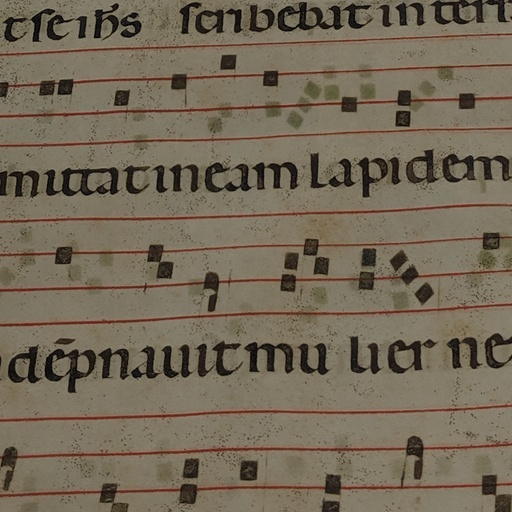 t se ih̄s scribebat in terr
mittat in eam lapidem
dēpnavit mu lier ne